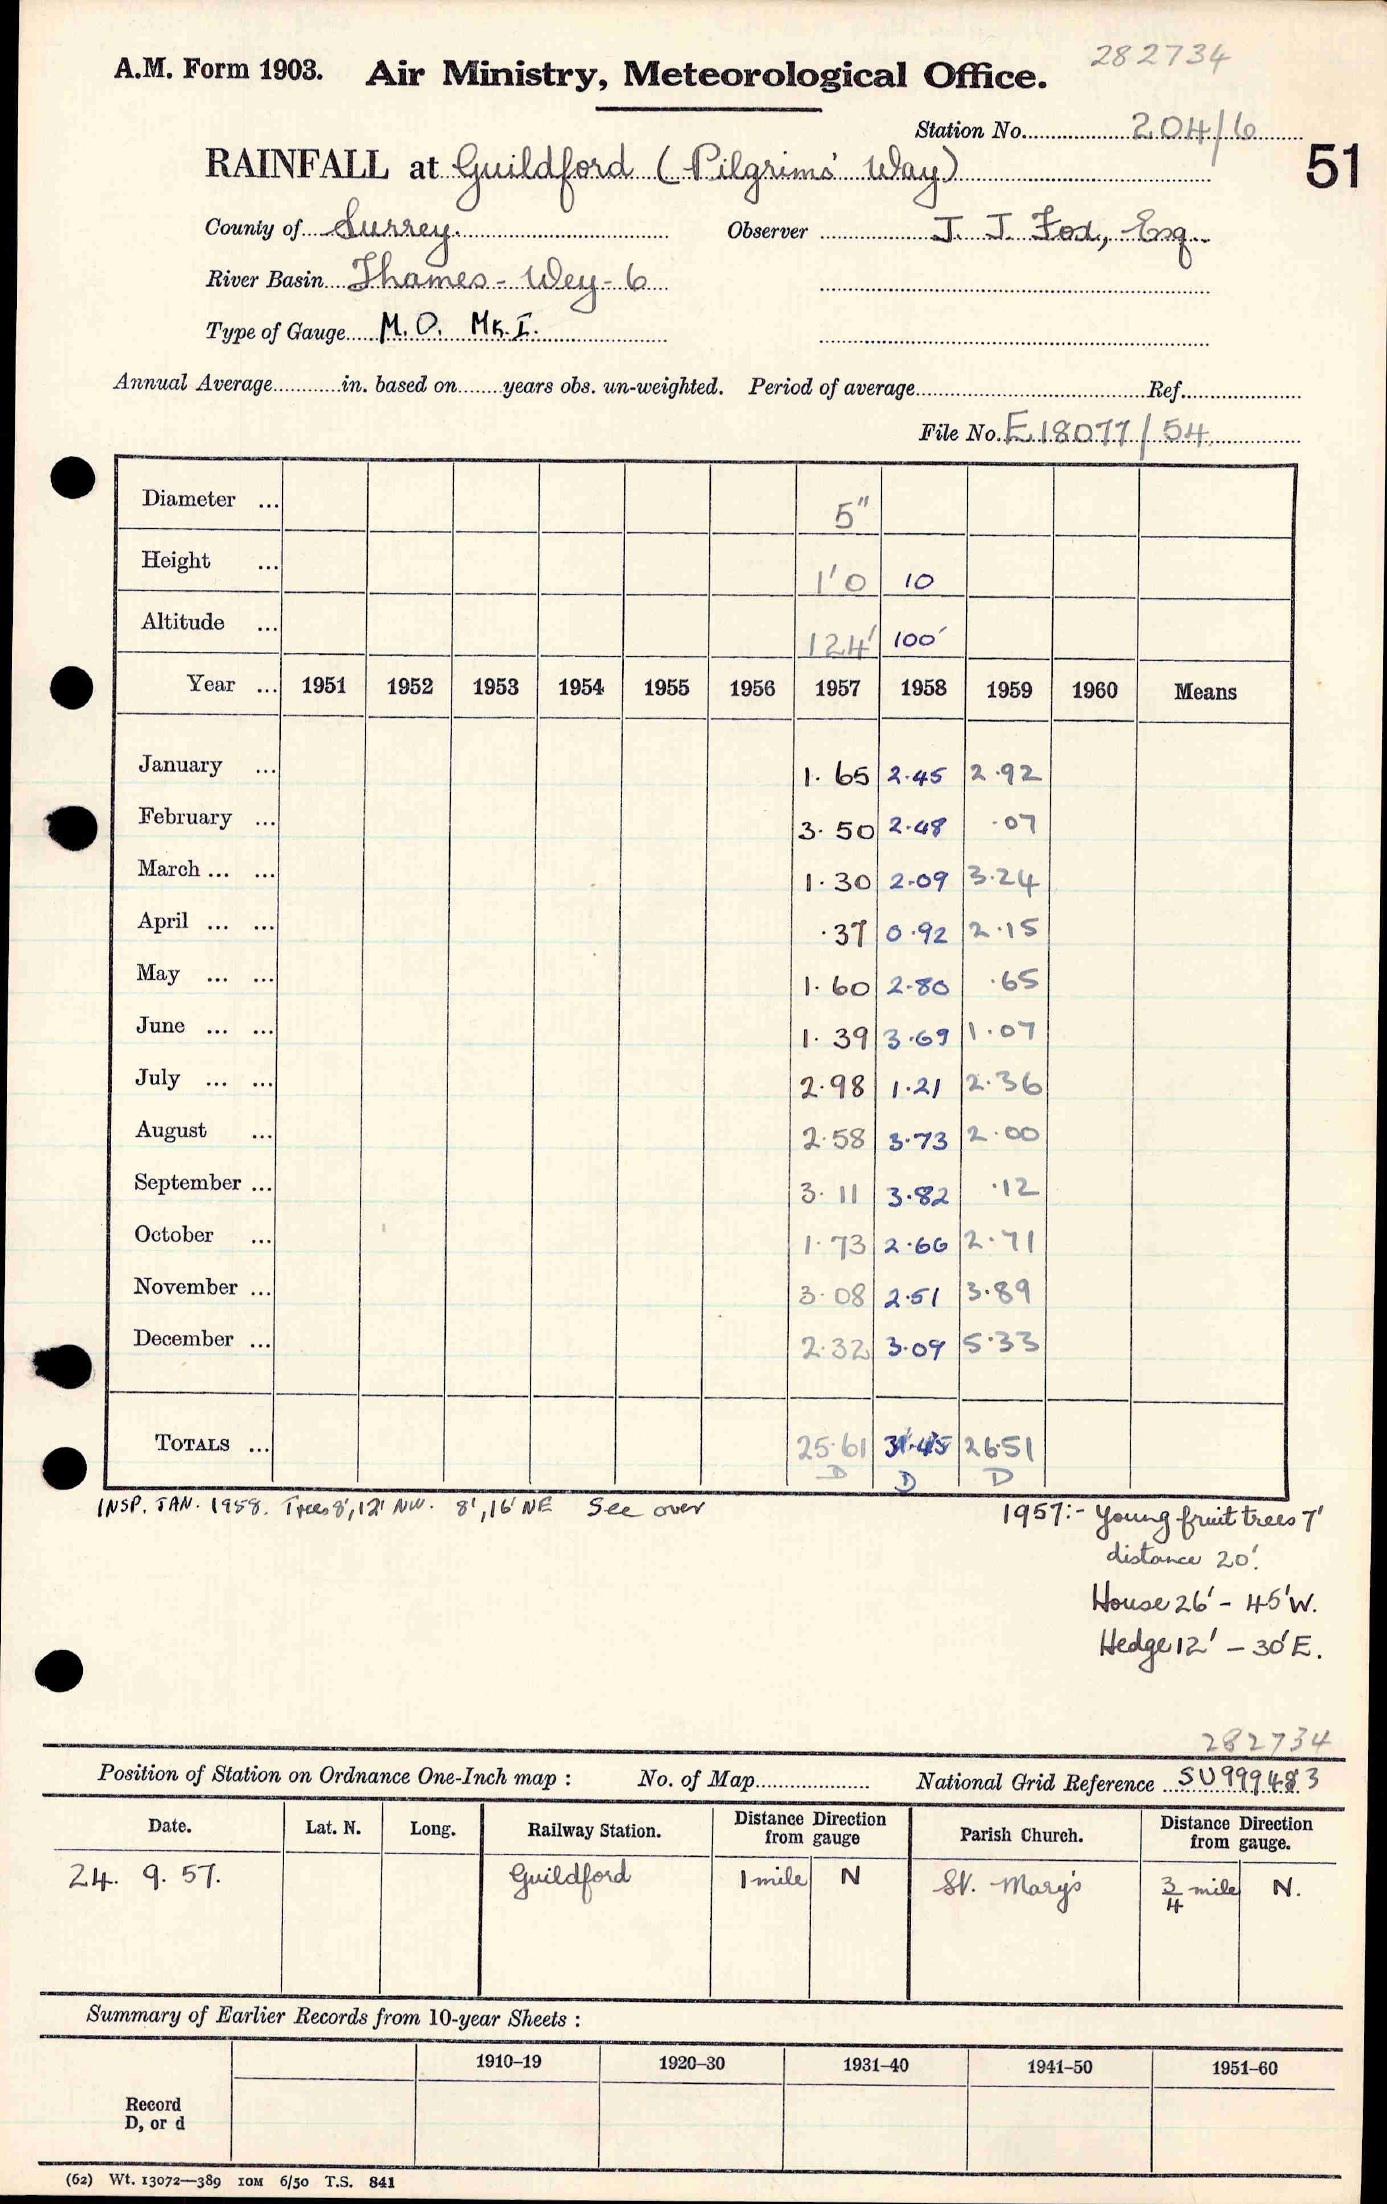 282734
A.M. Form 1903. Air Ministry, Meteorological Office.
Station No. 204/6
51
RAINFALL at Guildford (Pilgrims' Way)
County of Surrey. Observer J. J. Fox, Esq.
River Basin Thames - Wey - 6
Type of Gauge M.O. Mk. I.
Annual Average in. based on years obs. un-weighted. Period of average Ref.
File No. E18077/54
Diameter ... 5"
Height ... 1'0 10
Altitude ... 124' 100'
Year ... 1951 1952 1953 1954 1955 1956 1957 1958 1959 1960 Means
January ... 1.65 2.45 2.92
February ... 3.50 2.48 .07
March ... ... 1.30 2.09 3.24
April ... ... .37 0.92 2.15
May ... ... 1.60 2.80 .65
June ... ... 1.39 3.69 1.07
July ... ... 2.98 1.21 2.36
August ... 2.58 3.73 2.00
September ... 3.11 3.82 .12
October ... 1.73 2.66 2.71
November ... 3.08 2.51 3.89
December ... 2.32 3.09 5.33
TOTALS ... 25.61 31.45 26.51
D D D
INSP. JAN. 1958. Trees 8', 12' NW. 8', 16' NE See over
1957:- Young fruit trees 7'
distance 20'.
House 26' - 45' W.
Hedge 12' - 30' E.
282734
Position of Station on Ordnance One-Inch map : No. of Map National Grid Reference SU999483
Date. Lat. N. Long. Railway Station. Distance Direction from gauge Parish Church. Distance Direction from gauge.
24. 9. 57. Guildford 1 mile N St. Mary's 3/4 mile N.
Summary of Earlier Records from 10-year Sheets :
1910–19 1920–30 1931–40 1941–50 1951–60
Record
D, or d
(62) Wt. 13072—389 10M 6/50 T.S. 841